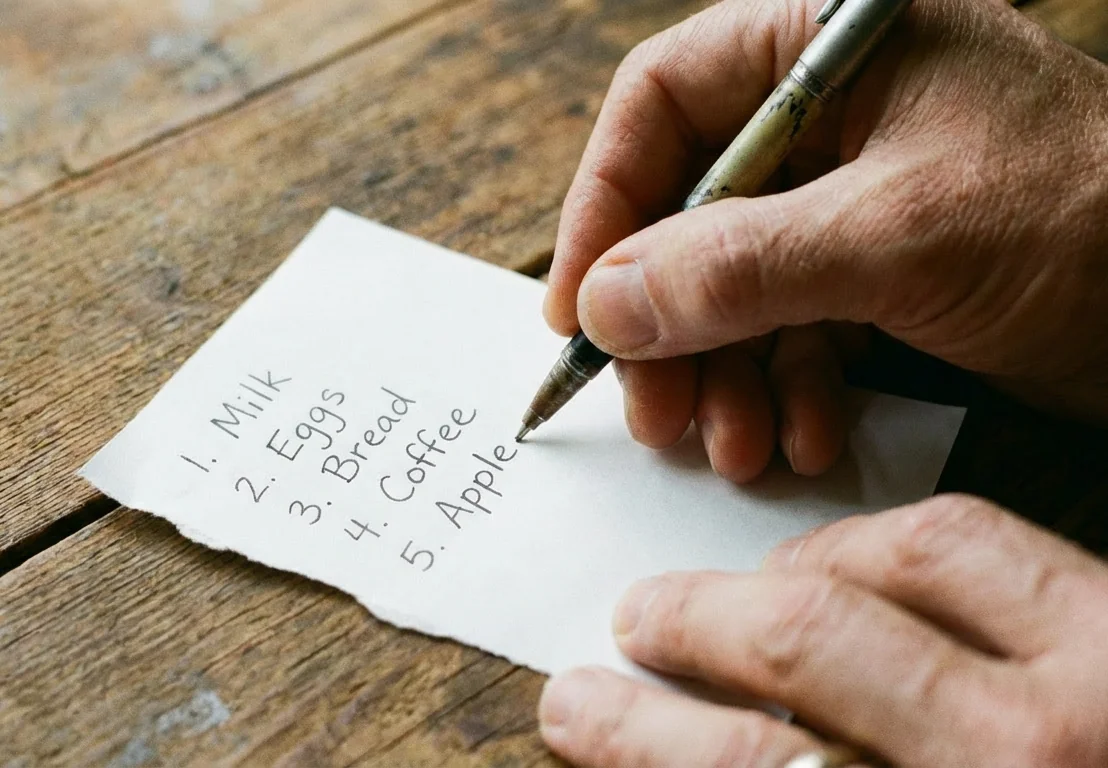 1. Milk
2. Eggs
3. Bread
4. Coffee
5. Apple